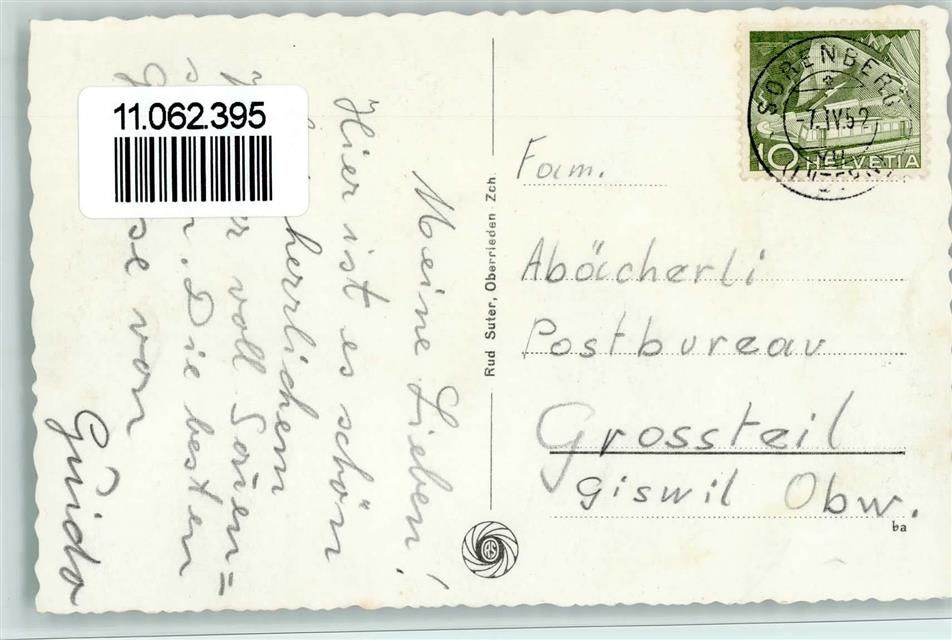 11.062.395
Meine Lieben!
Hier ist es schön
herrlichem
voll Sonnen=
. Die besten
von
Guido
Rud. Suter, Oberrieden - Zch.
SÖRENBERG
-7.IV.52
10 HELVETIA
Fam.
Abächerli
Postbureau
Grossteil
Giswil Obw.
ba